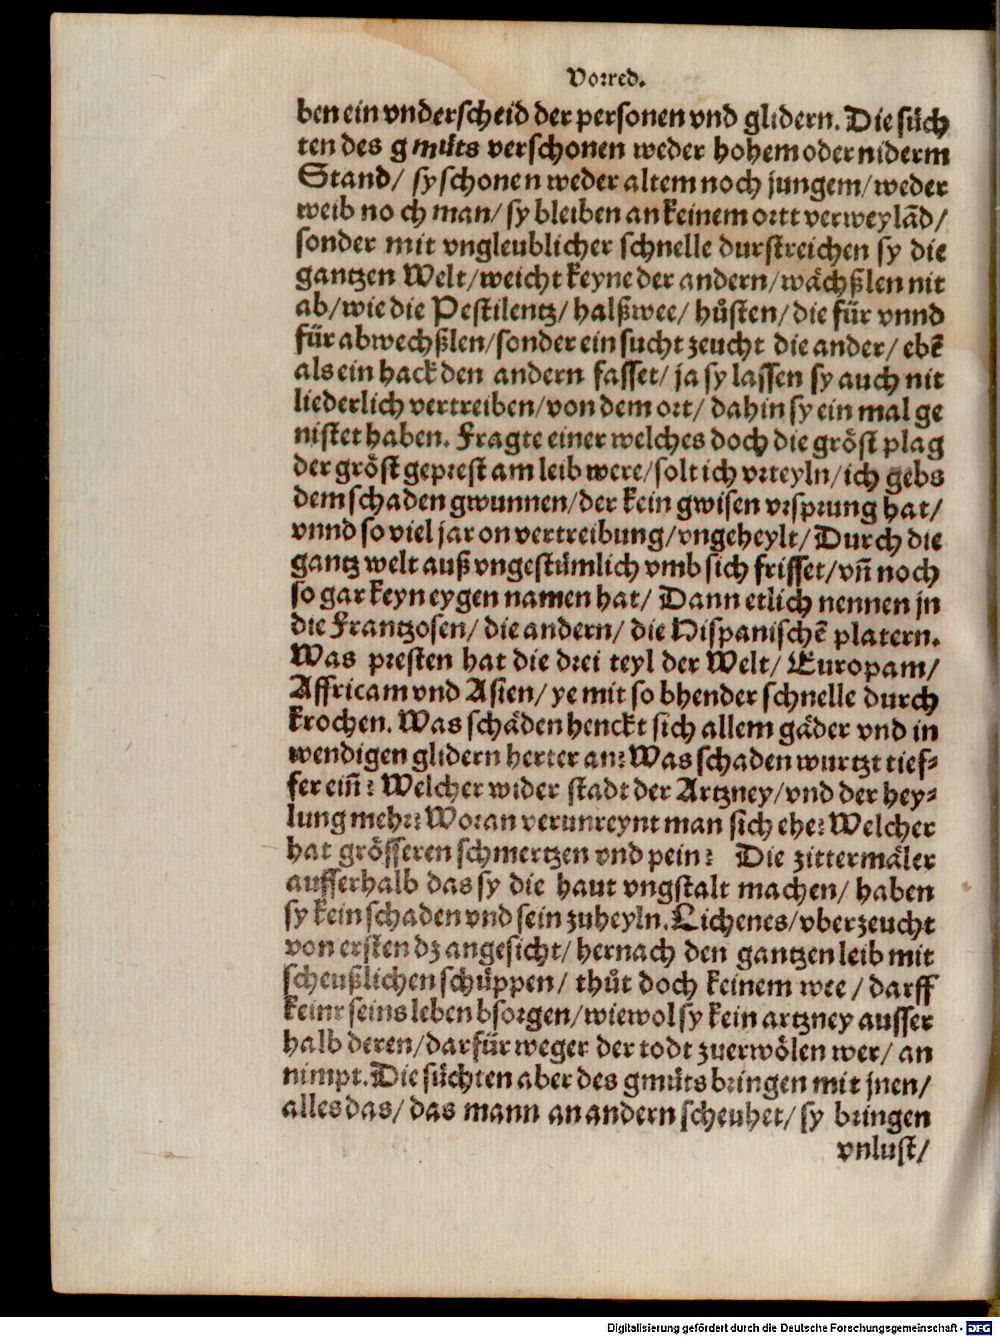 Vorred.
ben ein vnderscheid der personen vnd glidern. Die süch
ten des gmüts verschonen weder hohem oder niderm
Stand/ sy schonen weder altem noch jungem/ weder
weib no ch man/ sy bleiben an keinem ortt verweylād/
sonder mit vngleublicher schnelle durstreichen sy die
gantzen Welt/ weicht keyne der andern/ wächßlen nit
ab/ wie die Pestilentz/ halßwee/ hůsten/ die für vnnd
für abwechßlen/ sonder ein sucht zeucht die ander/ ebē
als ein hack den andern fasset/ ja sy lassen sy auch nit
liederlich vertreiben/ von dem ort/ dahin sy ein mal ge
nistet haben. Fragte einer welches doch die gröst plag
der gröst geprest am leib were/ solt ich vrteyln/ ich gebs
dem schaden gwunnen/ der kein gwisen vrsprung hat/
vnnd so viel jar on vertreibung/ vngeheylt/ Durch die
gantz welt auß vngestümlich vmb sich frisset/ vn̄ noch
so gar keyn eygen namen hat/ Dann etlich nennen jn
die Frantzosen/ die andern/ die Hispanischē platern.
Was presten hat die drei teyl der Welt/ Europam/
Affricam vnd Asien/ ye mit so bhender schnelle durch
krochen. Was schäden henckt sich allem gäder vnd in
wendigen glidern herter an? Was schaden wurtzt tief-
fer ein̄? Welcher wider stadt der Artzney/ vnd der hey-
lung mehr? Woran verunreynt man sich ehe? Welcher
hat grösseren schmertzen vnd pein? Die zittermäler
ausserhalb das sy die haut vngstalt machen/ haben
sy kein schaden vnd sein zuheyln. Lichenes/ vberzeucht
von ersten dz angesicht/ hernach den gantzen leib mit
scheußlichen schüppen/ thůt doch keinem wee/ darff
keinr seins leben bsorgen/ wiewol sy kein artzney ausser
halb deren/ darfür weger der todt zuerwölen wer/ an
nimpt. Die süchten aber des gmüts bringen mit jnen/
alles das/ das mann an andern scheuhet/ sy bringen
vnlust/
Digitalisierung gefördert durch die Deutsche Forschungsgemeinschaft - DFG